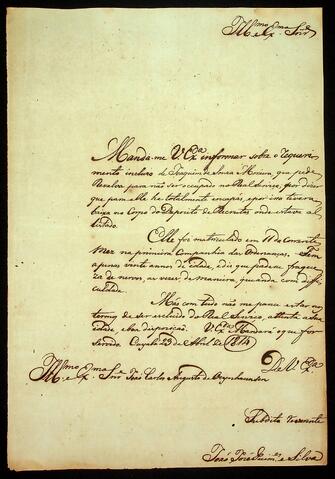 Ill.mo e Ex.mo Snr
Manda-me V. Ex.a informar sobre o requeri-
mento incluso de Joaquim de Souza Moreira, que pede
Resalva para não ser occupado no Real Serviço, por dizer
que para elle he totalmente incapás, e por isso tivera
baixa no Corpo do Deposito de Recrutas onde estava a-
listado.
Elle foi matriculado em 11 do Corrente
Mez na primeira Companhia das Ordenanças. Tem
apenas vente annos de idade, e diz que padece fraque-
za de nervos, as vezes de maneira, que anda com dif-
culdade.
Mas com tudo não me parece estar nos
termos de ser excluido do Real Serviço, attenta a sua
idade, e boa disposição. V. Ex.a Mandará o que for
servido. Cuyabá 23 de Abril de 1814
De V. Ex.a
Ill.mo e Ex.mo Snr João Carlos Augusto de Oeynhausen
Subdito Reverente
João José Guim.es e Silva